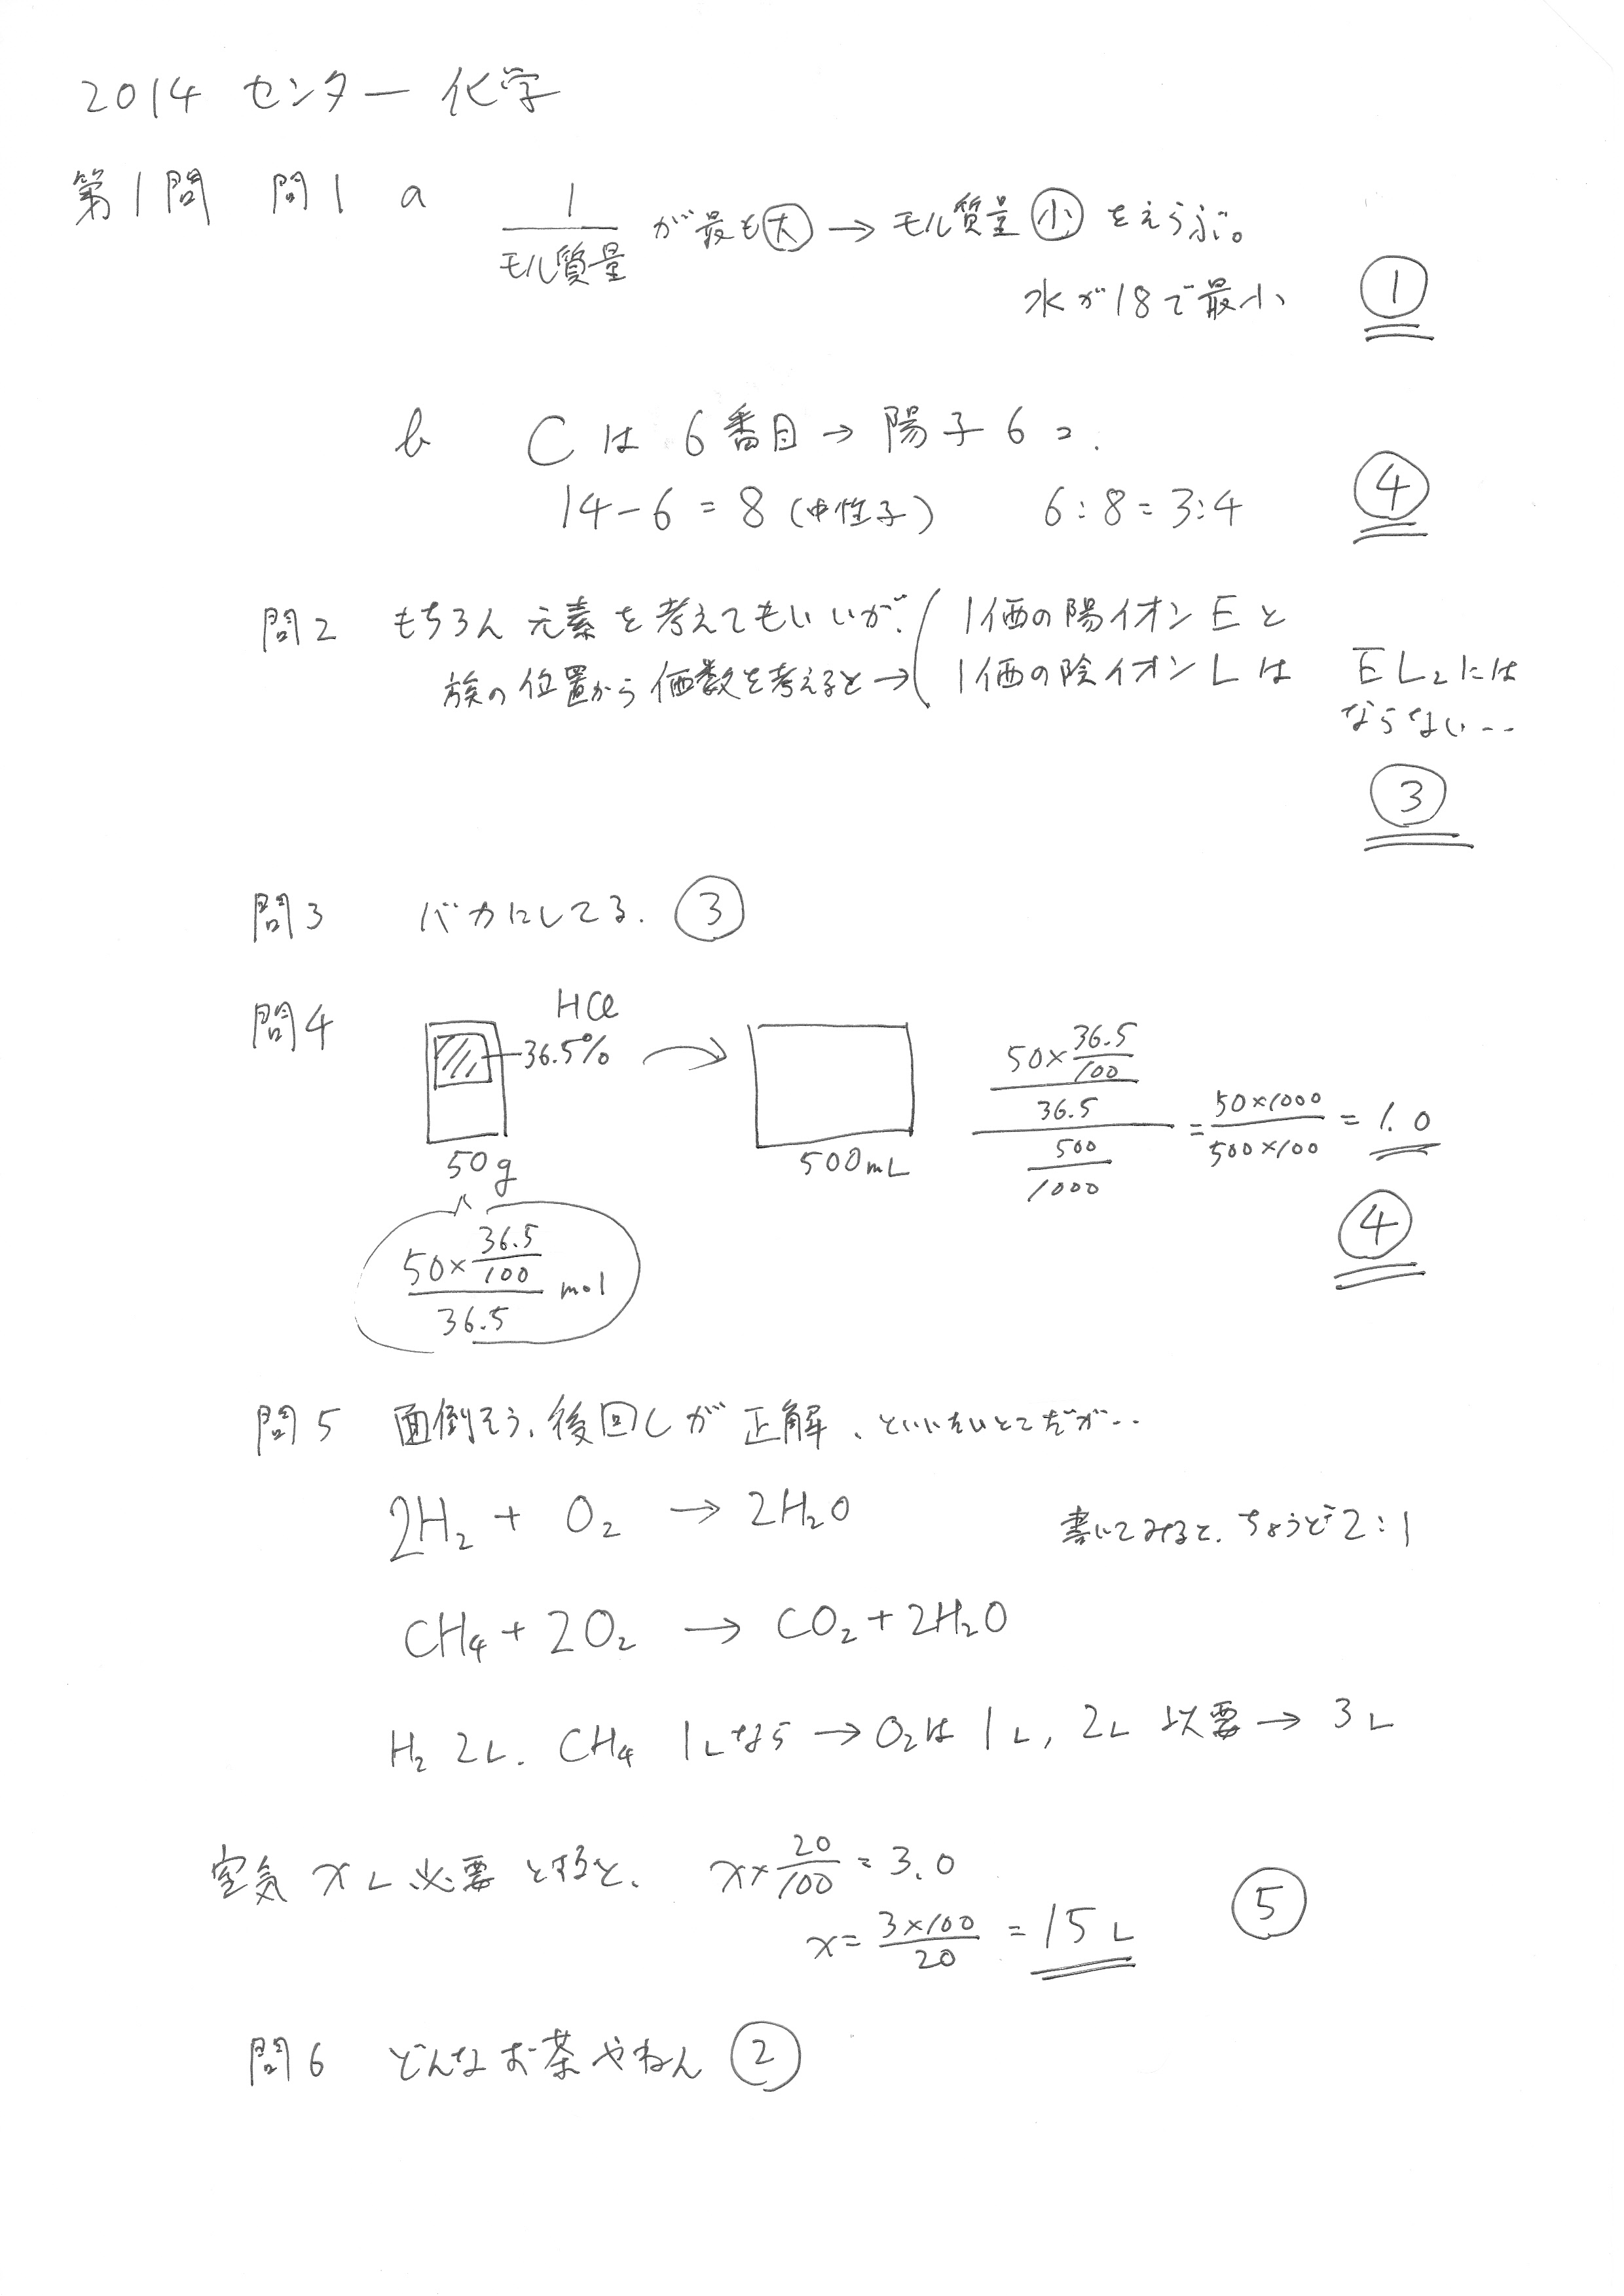 2014 センター 化学
第1問 問1 a 1/モル質量 が最も大 → モル質量 小 をえらぶ。
水が18で最小 ①
b Cは 6番目 → 陽子 6コ.
14-6 = 8 (中性子) 6:8 = 3:4 ④
問2 もちろん 元素を考えてもいいが、 1価の陽イオン E と
族の位置から価数を考えると → 1価の陰イオン L は EL₂には
ならない...
③
問3 バカにしてる. ③
問4 HCl
36.5%
50g
500mL
(50×36.5/100)/36.5 / (500/1000) = 50×1000/500×100 = 1.0
④
(50×36.5/100)/36.5 mol
問5 面倒そう、後回しが正解、といいたいとこだが..
2H₂ + O₂ → 2H₂O 書いてみると、ちょうど2:1
CH₄ + 2O₂ → CO₂ + 2H₂O
H₂ 2L. CH₄ 1Lなら → O₂は 1L, 2L 必要 → 3L
空気 xL 必要 とすると、 x×20/100 = 3.0
x = 3×100/20 = 15L ⑤
問6 どんなお茶やねん ②